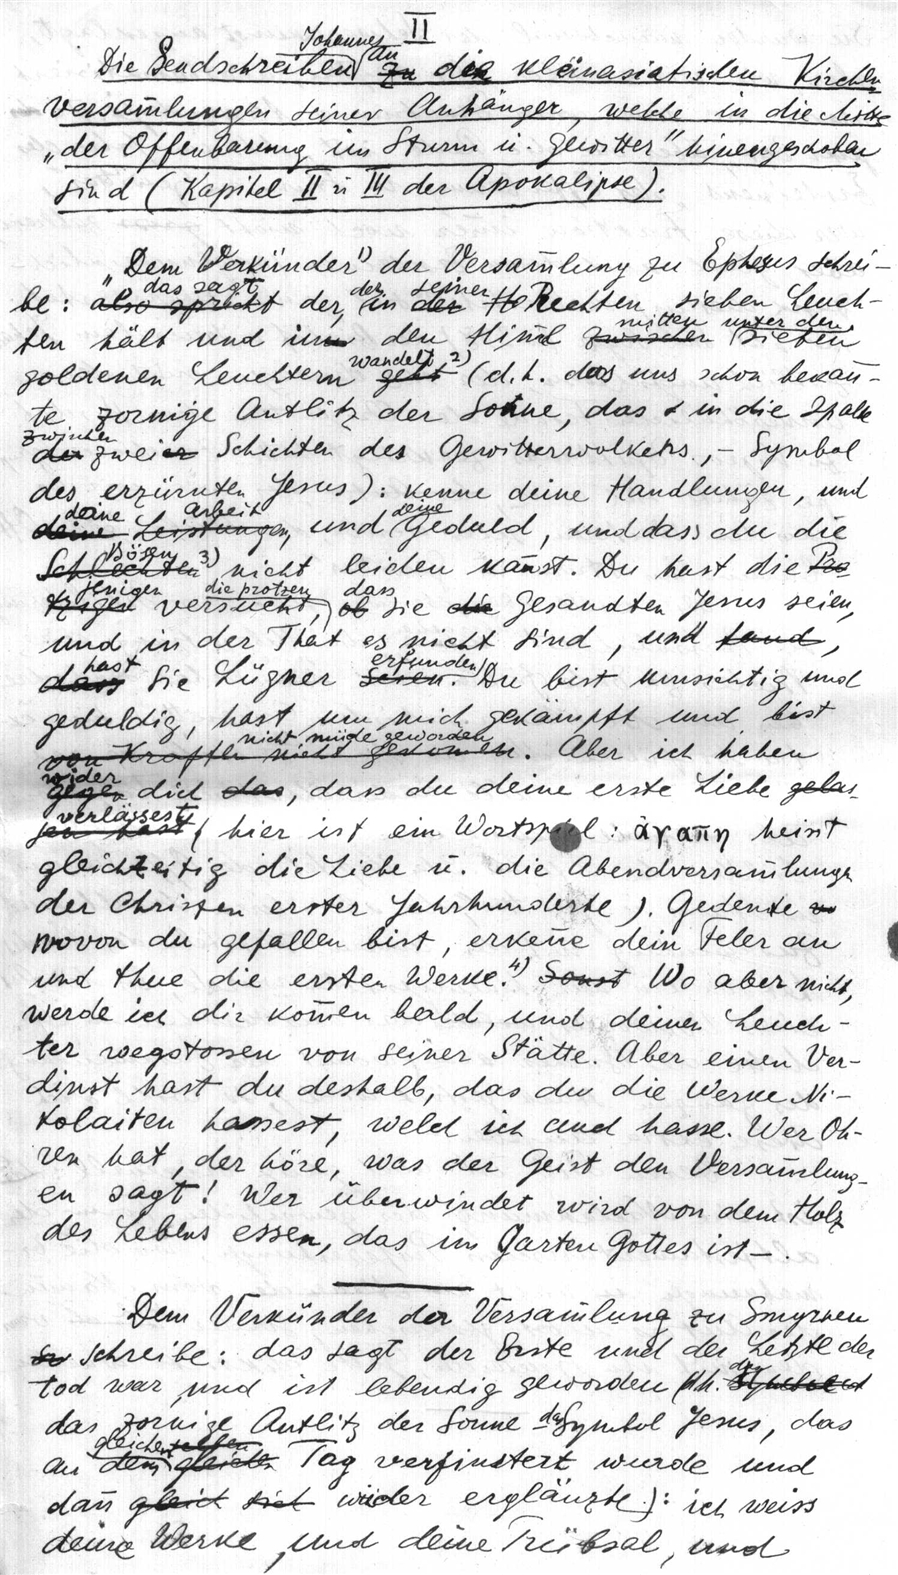 II
Die Sendschreiben Johannes an die kleinasiatischen Kirchen
versam̄lungen seiner Anhänger, welche in die Mitte
„der Offenbarung im Sturm u. Gewitter" hineingeschoben
sind (Kapitel II u III der Apokalipse).
„Dem Verkünder¹⁾ der Versam̄lung zu Ephesus schrei-
be: das sagt der, der in seiner Rechten sieben Leuch-
ten hält und im den Him̄l mitten unter den sieben
goldenen Leuchtern wandelt ²⁾ (d.h. das uns schon bekan̄-
te zornige Antlitz der Son̄e, das in die Spalte
zwischen zwei Schichten des Gewitterwolkens, – Symbol
des erzürnten Jesus): kenne deine Handlungen, und
deine Arbeit, und deine Geduld, und dass du die
Bösen ³⁾ nicht leiden kan̄st. Du hast die
jenigen versucht, die protzen, dass sie Gesandten Jesus seien,
und in der That es nicht sind, und
hast sie Lügner erfunden. Du bist umsichtig und
geduldig, hast um mich gekämpft und bist
nicht müde geworden. Aber ich haben
wider dich, dass du deine erste Liebe
verlässest (hier ist ein Wortspiel: ἀγαπη heisst
gleichzeitig die Liebe u. die Abendversam̄lungen
der Christen erster Jahrhunderte). Gedenke
wovon du gefallen bist, erken̄e dein Feler an
und thue die ersten Werke.⁴⁾ Wo aber nicht,
werde ich dir kom̄en bald, und deinen Leuch-
ter wegstossen von seiner Stätte. Aber einen Ver-
dinst hast du deshalb, das du die Werke Ni-
kolaiten hassest, welch ich auch hasse. Wer Oh-
ren hat, der höre, was der Geist den Versam̄lung-
en sagt! Wer überwindet wird von dem Holz
des Lebens essen, das im Garten Gottes ist –.
Dem Verkünder der Versam̄lung zu Smyrnen
schreibe: das sagt der Erste und der Letzte der
tod war und ist lebendig geworden (d.h.
das zornige Antlitz der Sonne das Symbol Jesus, das
an dem gleichen Tag verfinstert wurde und
dan̄ wider erglänzte): ich weiss
deine Werke, und deine Trübsal, und